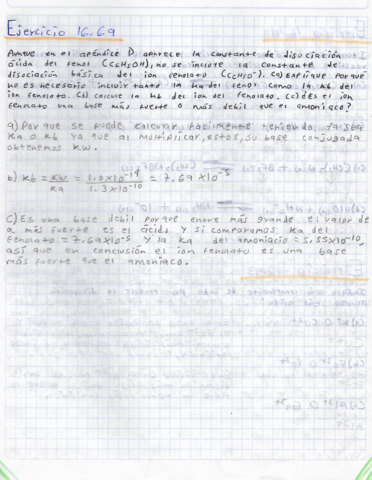 Ejercicio 16.69
Aunque en el apéndice D aparece la constante de disociación
ácida del fenol (C6H5OH), no se incluye la constante de
disociación básica del ion fenolato (C6H5O⁻). (a) Explique por qué
no es necesario incluir tanto la Ka del fenol como la Kb del
ion fenolato. (b) calcule la Kb del ion del fenolato, (c) ¿Es el ion
fenolato una base más fuerte o más débil que el amoniaco?
a) Porque se puede calcular fácilmente teniendo
Ka o Kb ya que al multiplicar, estos, su base conjugada
obtenemos Kw.
b) Kb = Kw / Ka = 1.0x10⁻¹⁴ / 1.3x10⁻¹⁰ = 7.69 x10⁻⁵
C) Es una base debil porque entre más grande el valor de
a más fuerte es el ácido y si comparamos Ka del
fenolato = 7.69x10⁻⁵ y la Ka del amoniaco = 5.55x10⁻¹⁰,
así que en conclusión el ion fenolato es una base
más fuerte que el amoniaco.